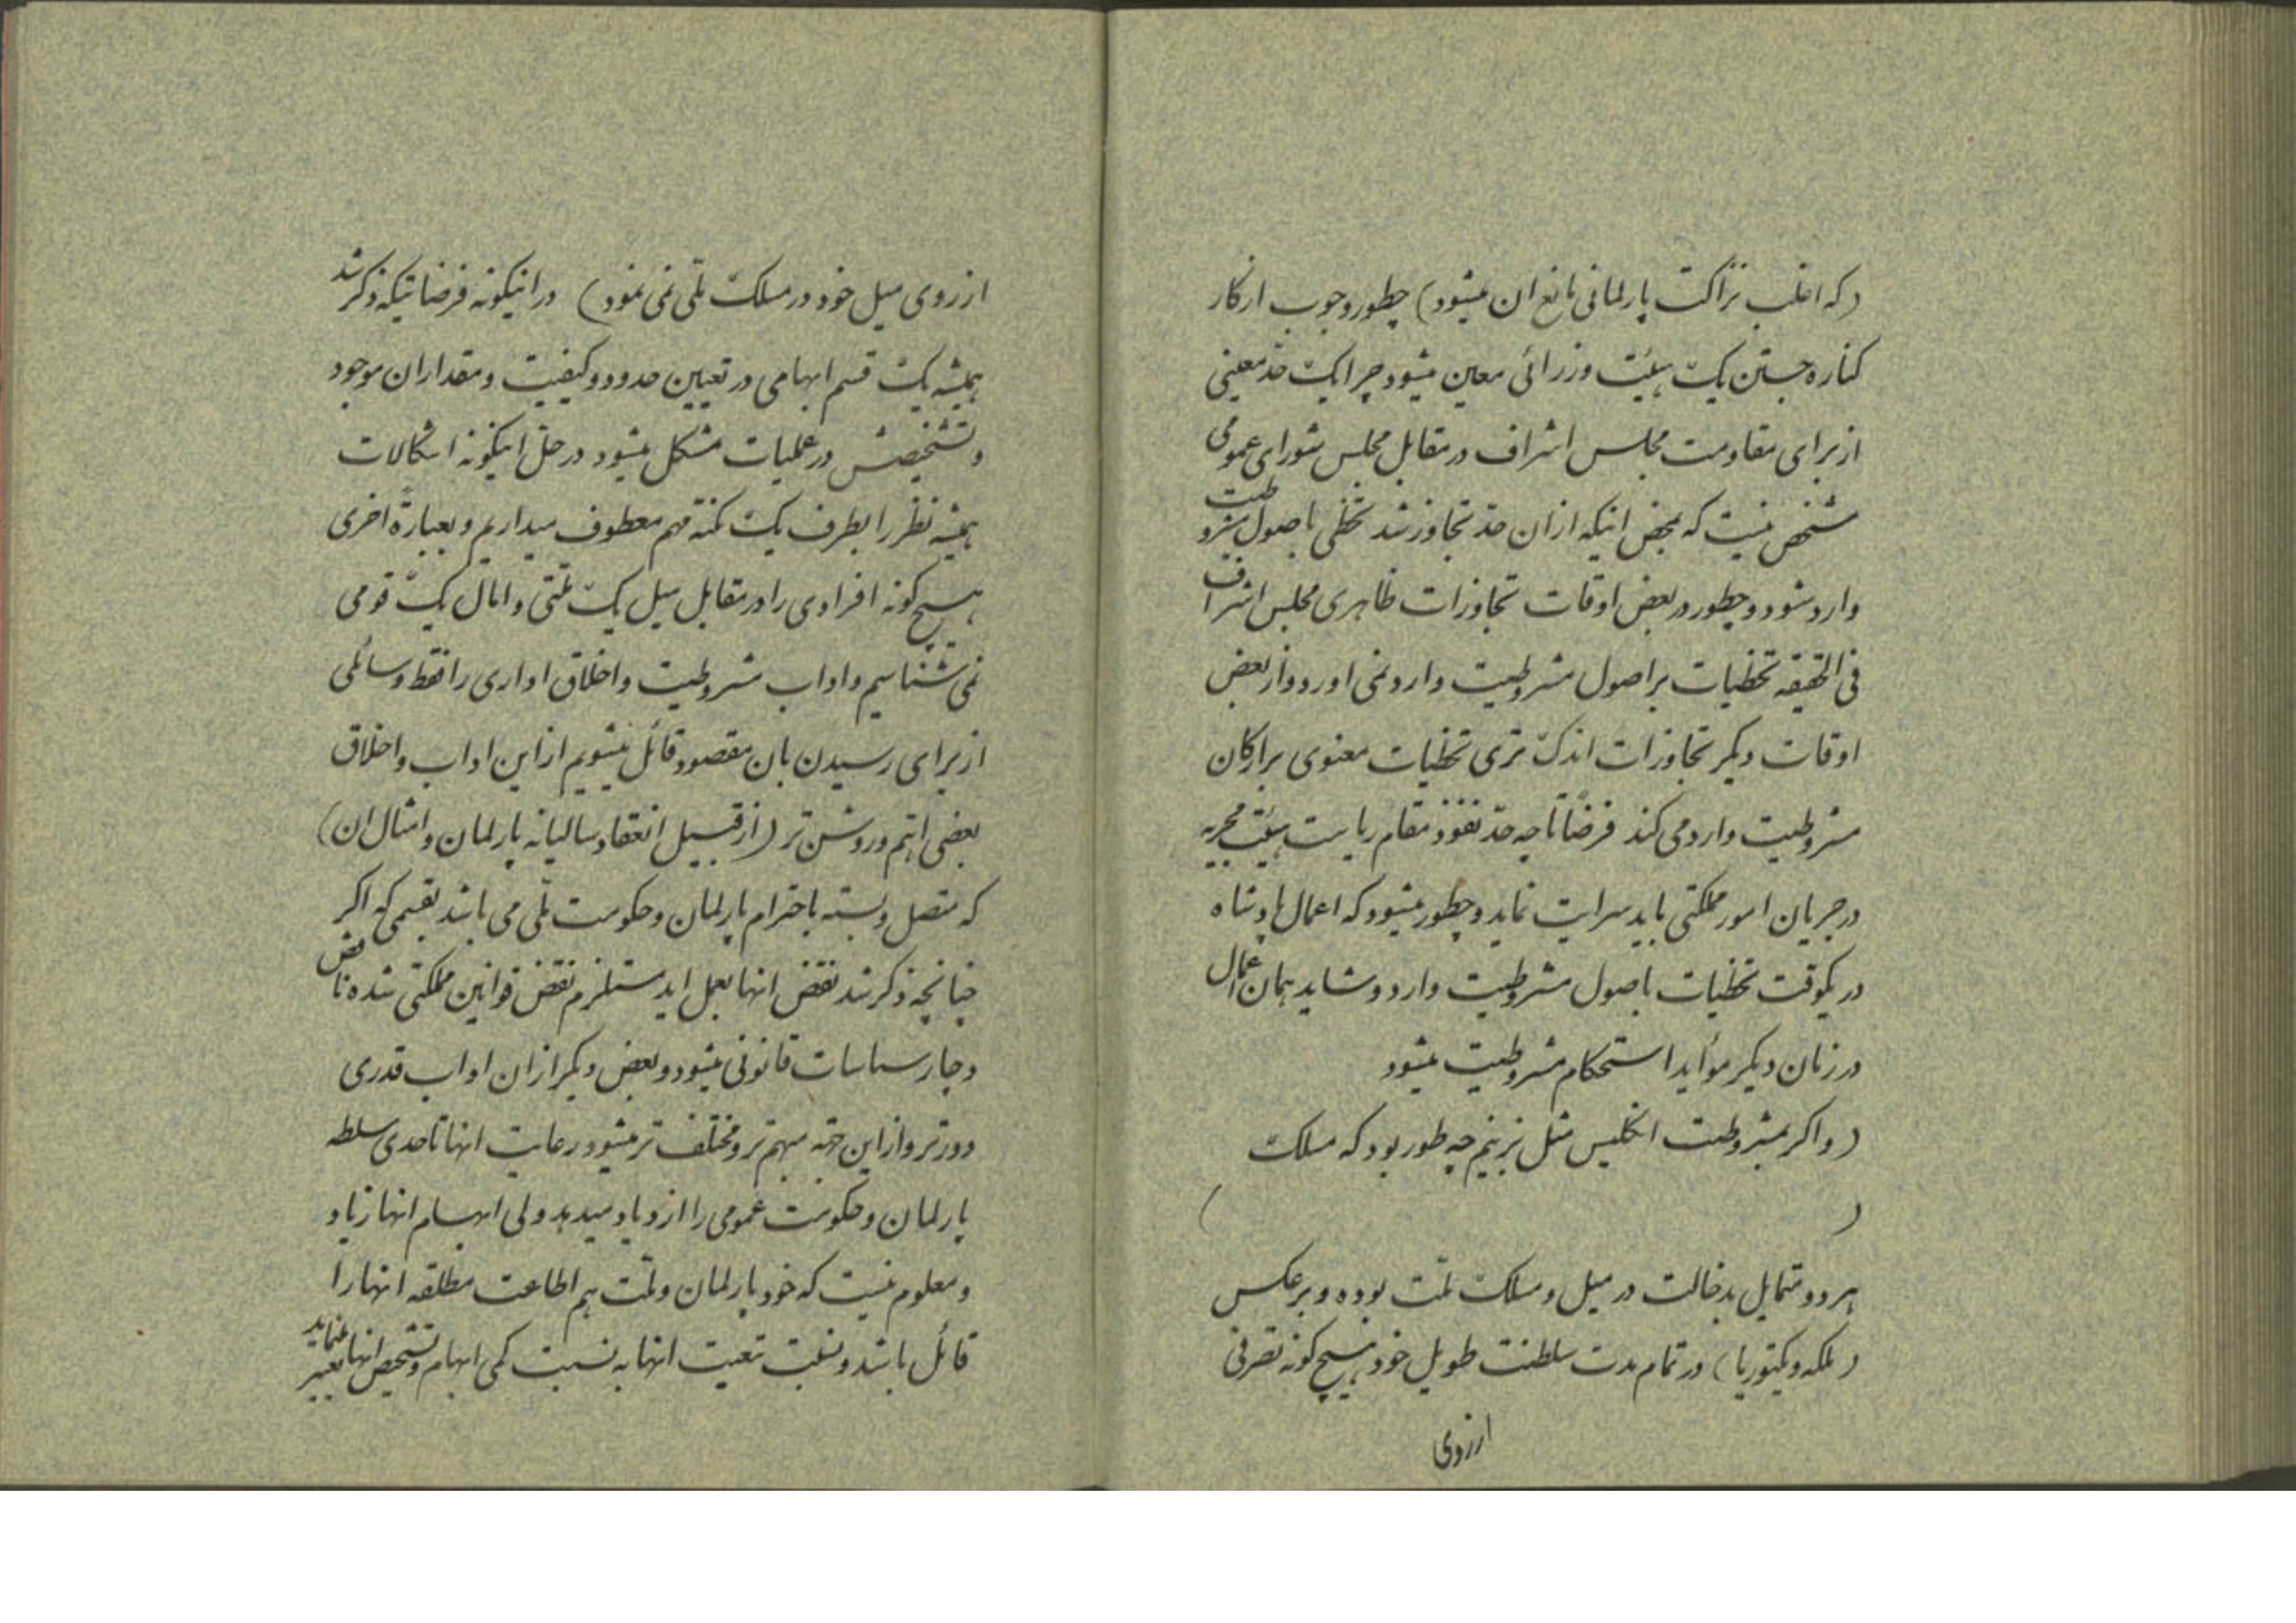 (که اغلب نزاکت پارلمانی مانع ان میشود) چطور وجوب از کار
کناره جستن یک هیئت وزرائی معین میشود چرا یک حد معینی
از برای مقاومت مجلس اشراف در مقابل مجلس شورای عمومی
مشخص نیست که بمحض اینکه از ان حد تجاوز شد تخطی باصول مشروطیت
وارد شود و چطور در بعض اوقات تجاوزات ظاهری مجلس اشراف
فی الحقیقه تخطیات بر اصول مشروطیت وارد نمی اورد و از بعض
اوقات دیگر تجاوزات اندک تری تخطیات معنوی بر ارکان
مشروطیت وارد می کند فرضاً تا چه حد نفوذ مقام ریاست هیئت مجریه
در جریان امور مملکتی باید سرایت نماید و چطور میشود که اعمال پادشاه
در یکوقت تخطیات باصول مشروطیت وارد و شاید همان اعمال
در زمان دیگر مؤاید استحکام مشروطیت میشود
(و اگر بمشروطیت انگلیس مثل بزنیم چه طور بود که مسلک
( )
هر دو متمایل بدخالت در میل و مسلک ملت بوده و برعکس
(ملکه ویکتوریا) در تمام مدت سلطنت طویل خود هیچ گونه تصرفی
از روی
از روی میل خود در مسلک ملی نمی نمود) در اینگونه فرضیاتیکه ذکر شد
همیشه یک قسم ابهامی در تعیین حدود و کیفیت و مقدار ان موجود
و تشخیصش در عملیات مشکل میشود در حل اینگونه اشکالات
همیشه نظر را بطرف یک نکته مهم معطوف میداریم و بعبارة اخری
هیچ گونه افرادی را در مقابل میل یک ملتی و امال یک قومی
نمی شناسیم و اداب مشروطیت و اخلاق اداری را فقط وسائلی
از برای رسیدن بان مقصود قائل میشویم از این اداب و اخلاق
بعضی اهم و روشن تر (از قبیل انعقاد سالیانه پارلمان و امثال ان)
که متصل و بسته باحترام پارلمان و حکومت ملی می باشد بقسمی که اگر
چنانچه ذکر شد نقض انها بعمل اید مستلزم نقض قوانین مملکتی شده ناقض
دچار سیاسات قانونی میشود و بعض دیگر از ان اداب قدری
دورتر و از این جهة مبهم تر و مختلف تر میشود رعایت انها تا حدی سلطه
پارلمان و حکومت عمومی را ازدیاد میدهد ولی ابهام انها زیاد
و معلوم نیست که خود پارلمان و ملت هم اطاعت مطلقه انها را
قائل باشد و نسبت تبعیت انها به نسبت کمی ابهام و تشخیص انها تغییر مینماید